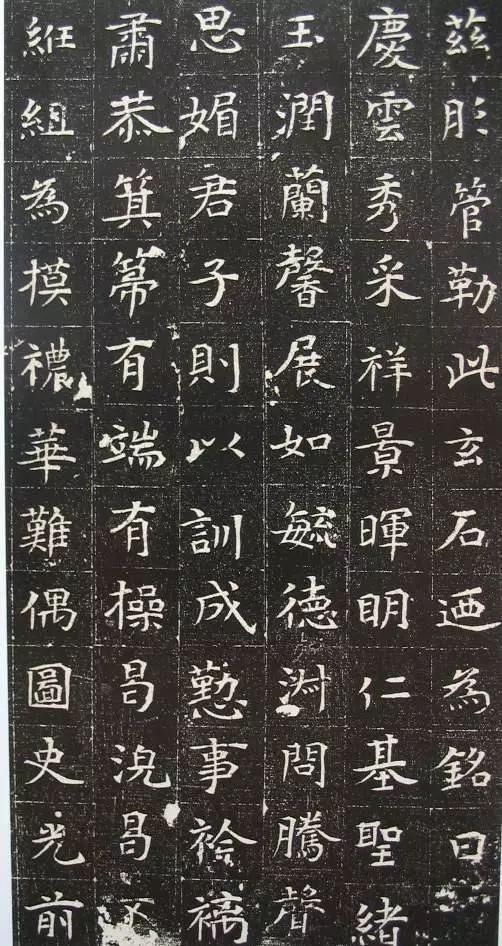 茲彤管勒此玄石迺為銘曰
慶雲秀采祥景暉明仁基聖緒
玉潤蘭馨展如毓德淵問騰聲
思媚君子則以訓成懃事衿褵
肅恭箕箒有端有操昌況昌
絍組為摸襛華難偶圖史光前